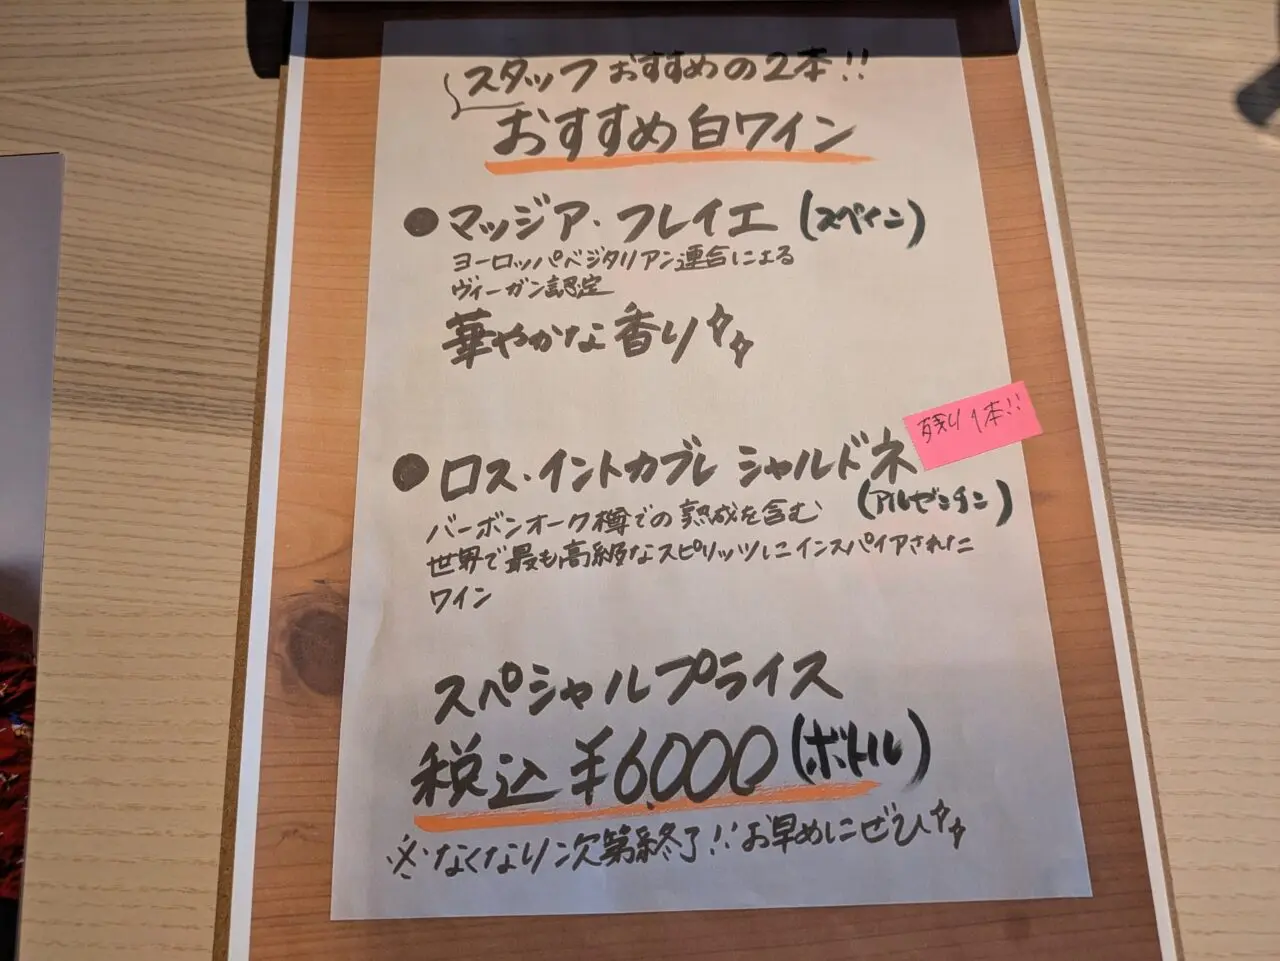 スタッフおすすめの2本!!
おすすめ白ワイン
●マッジア・フレイエ (スペイン)
ヨーロッパベジタリアン連合による
ヴィーガン認定
華やかな香り
残り1本!!
●ロス・イントカブレ シャルドネ
(アルゼンチン)
バーボンオーク樽での熟成を含む
世界で最も高級なスピリッツにインスパイアされた
ワイン
スペシャルプライス
税込¥6,000(ボトル)
※なくなり次第終了!!お早めにぜひ